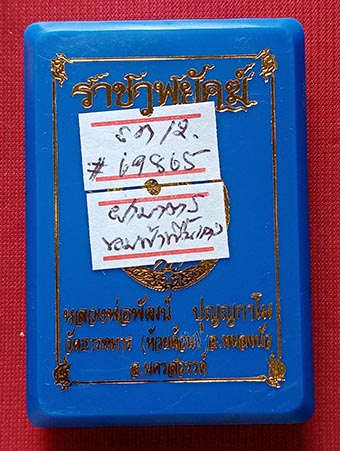 ราชาพยัคฆ์
รต 12.
#69865
ฝาบาตร
ขอบฟ้าพื้นแดง
หลวงพ่อพัฒน์ ปุญญกาโม
วัดธารทหาร (ห้วยด้วน) อ.หนองบัว
จ.นครสวรรค์